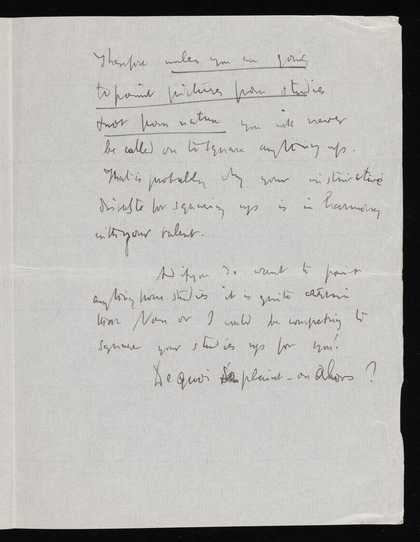 Therefore unless you are going
to paint pictures from studies
& not from nature you will never
be called on to square anything up.
That is probably why your instinctive
distaste for squaring up is in harmony
with your talent.
And if you do want to paint
anything from studies it is quite certain
Nan or I would be competing to
square your studies up for you!
De quoi se plaint-on alors?